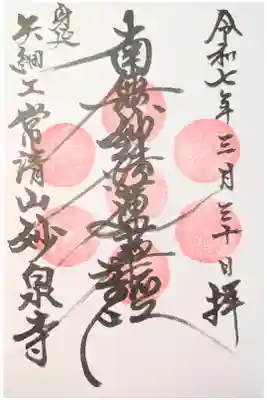 令和七年三月三十日 拝
南無妙法蓮華経
身延
矢細工 常清山 妙泉寺